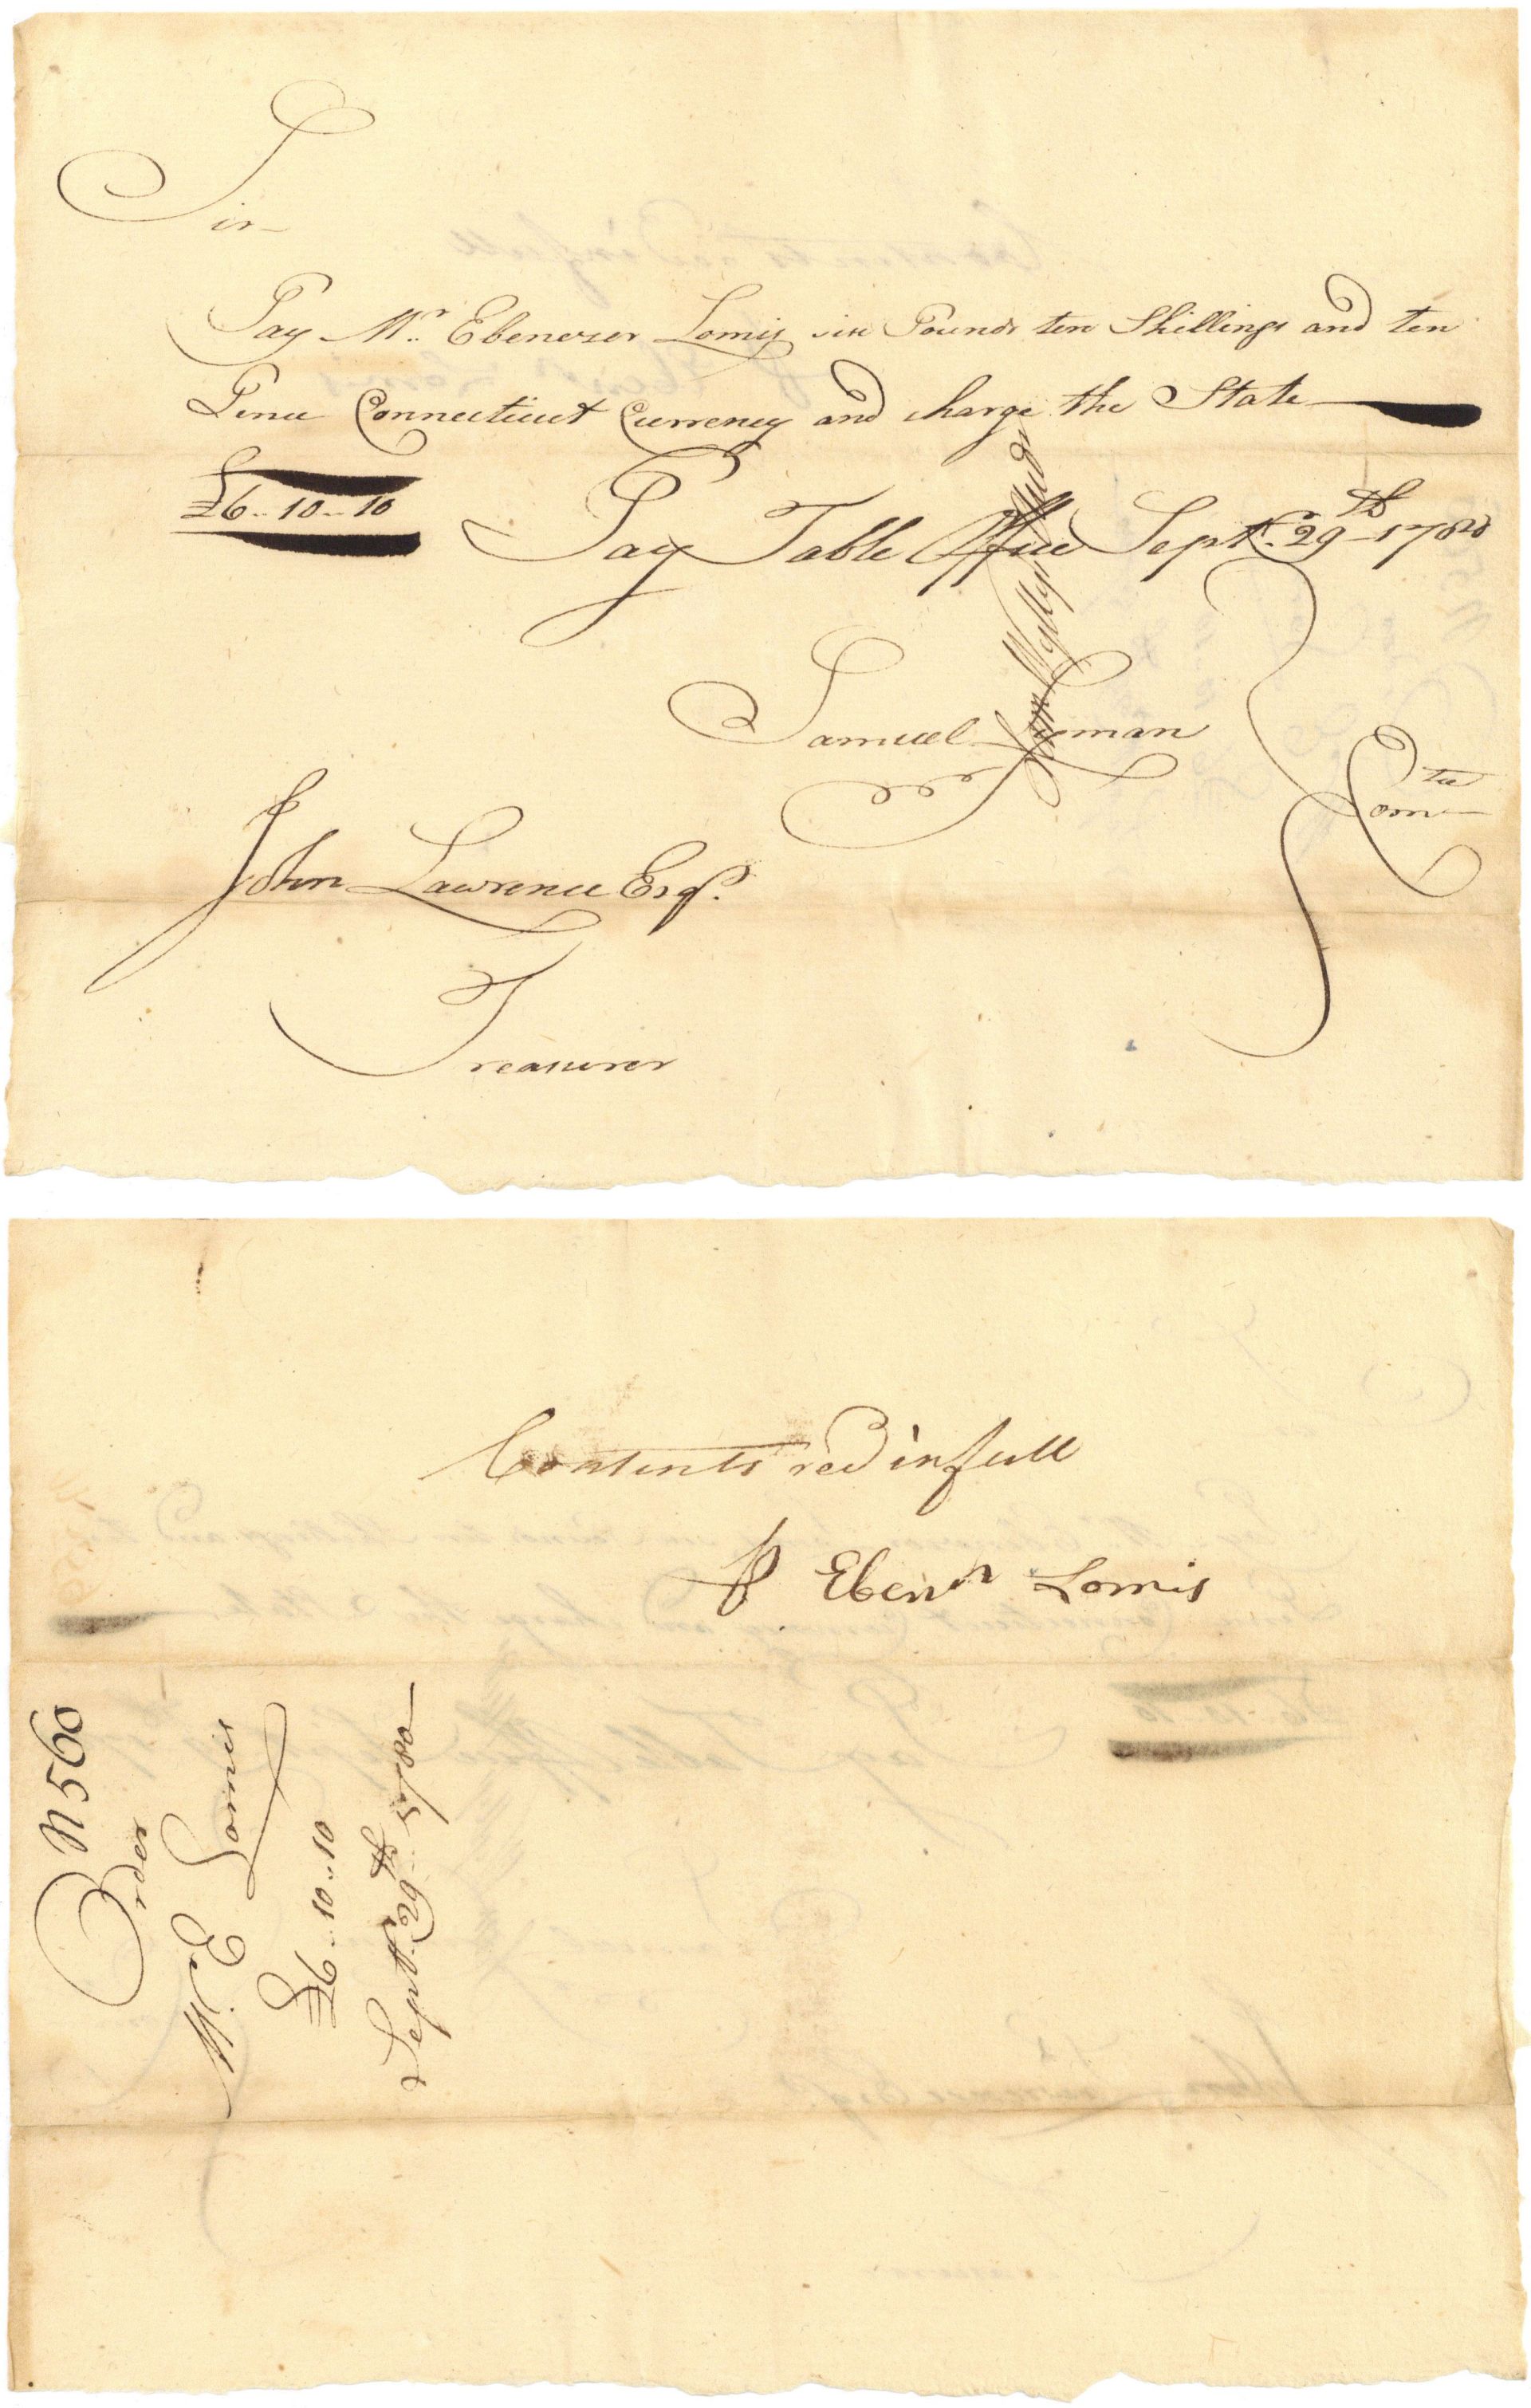 Sir
Pay Mr. Ebenezer Lomis six Pounds ten Shillings and ten
Pence Connecticut Currency and charge the State
£6..10..10
Pay Table Office Septr. 29th 1780
Samuel Lyman
Comtee
John Lawrence Esqr.
Treasurer
Contents recd in full
Ebenr Lomis
N 560
Order
Mr. E Lomis
£6..10..10
Septr. 29th 1780